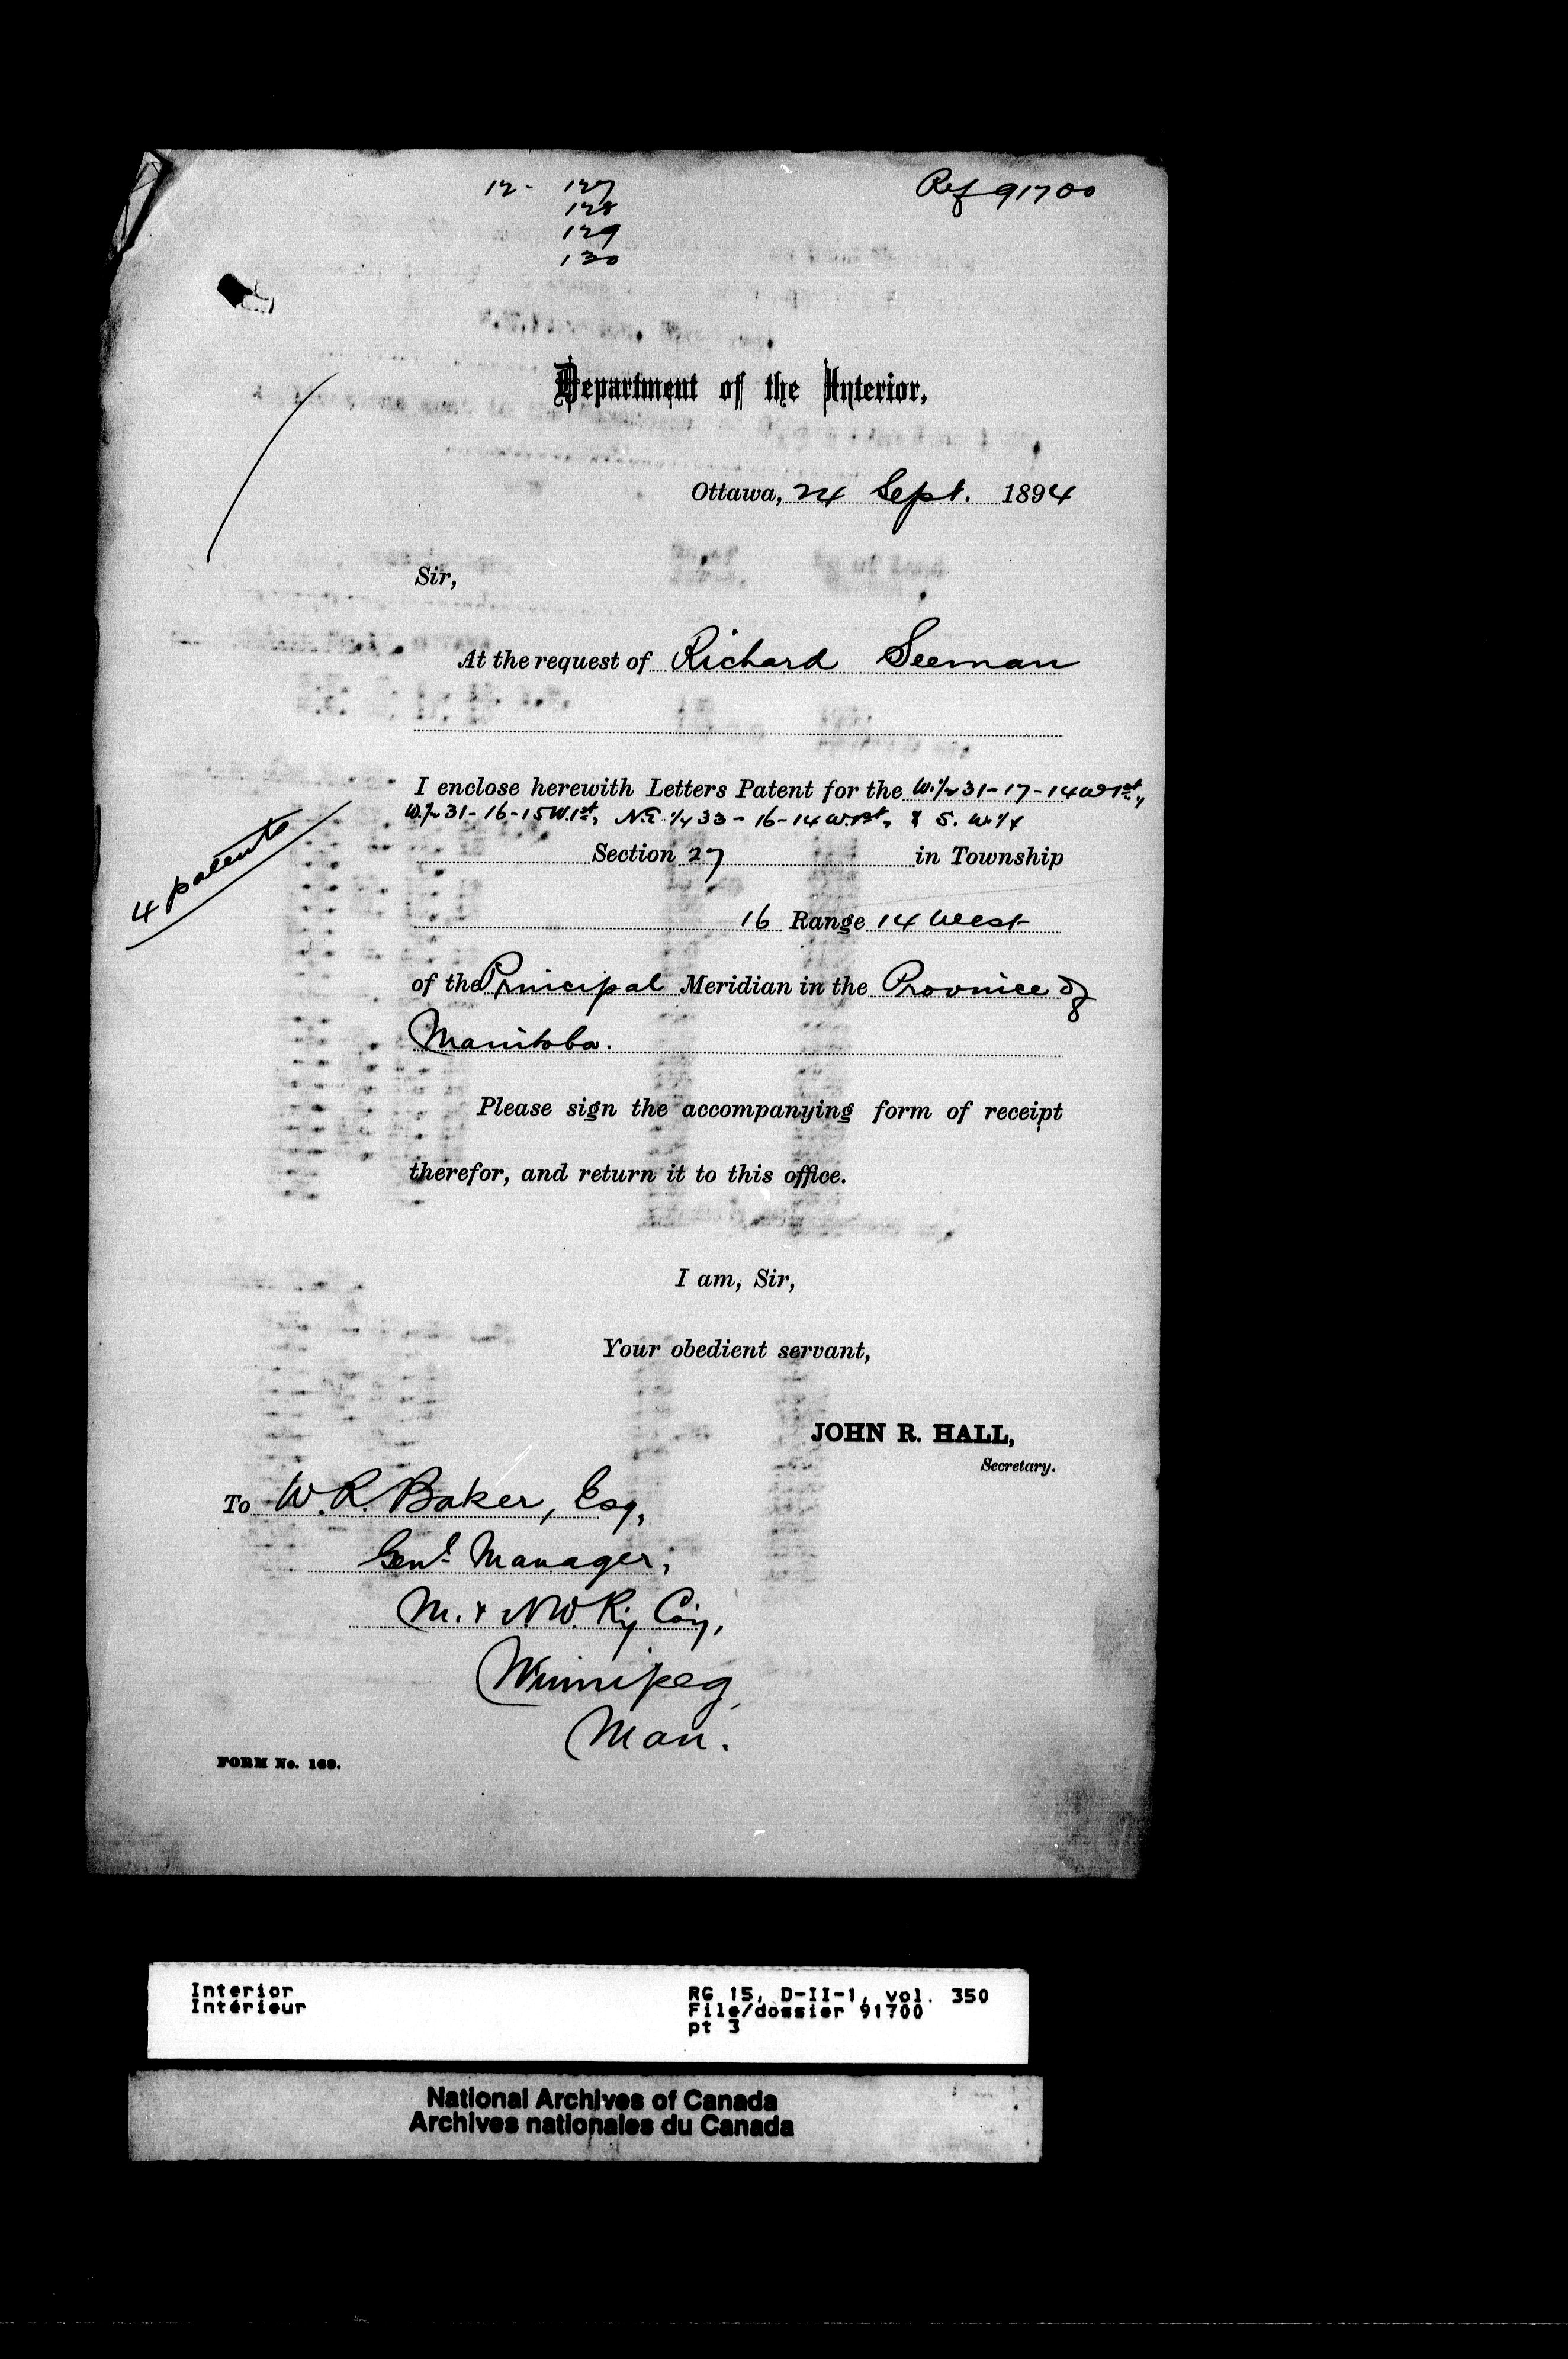 12- 127
128
129
130
Ref 91700
Department of the Interior,
Ottawa, 24 Sept. 1894
Sir,
At the request of Richard Seeman
I enclose herewith Letters Patent for the W.1/2 31-17-14 W 1st,
W.1/2 31-16-15 W.1st, N.E. 1/4 33-16-14 W.1st, & S. W. 1/4
Section 27 in Township
4 patents
16 Range 14 West
of the Principal Meridian in the Province of
Manitoba.
Please sign the accompanying form of receipt
therefor, and return it to this office.
I am, Sir,
Your obedient servant,
JOHN R. HALL,
Secretary.
To W. R. Baker, Esq,
Genl Manager,
M. & N W. Ry Coy,
Winnipeg,
Man.
FORM No. 169.
Interior RG 15, D-II-1, vol. 350
Intérieur File/dossier 91700
pt 3
National Archives of Canada
Archives nationales du Canada